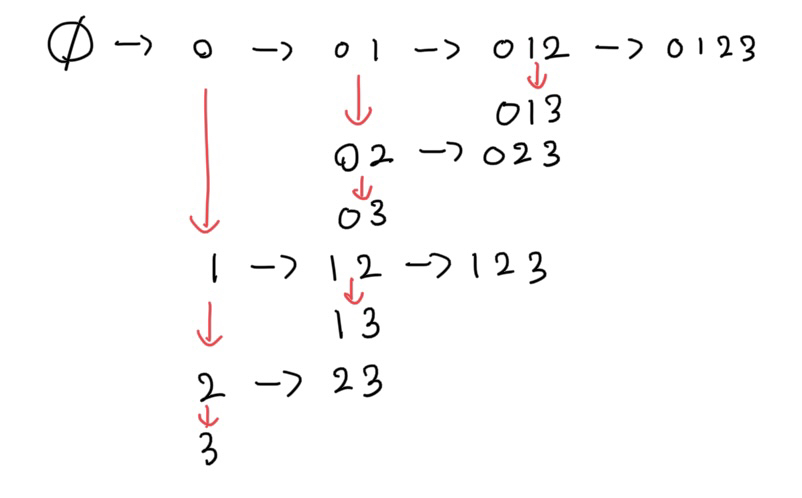 ∅ → 0 → 01 → 012 → 0123
↓ ↓ ↓
013
02 → 023
↓
03
1 → 12 → 123
↓ ↓
13
2 → 23
↓
3